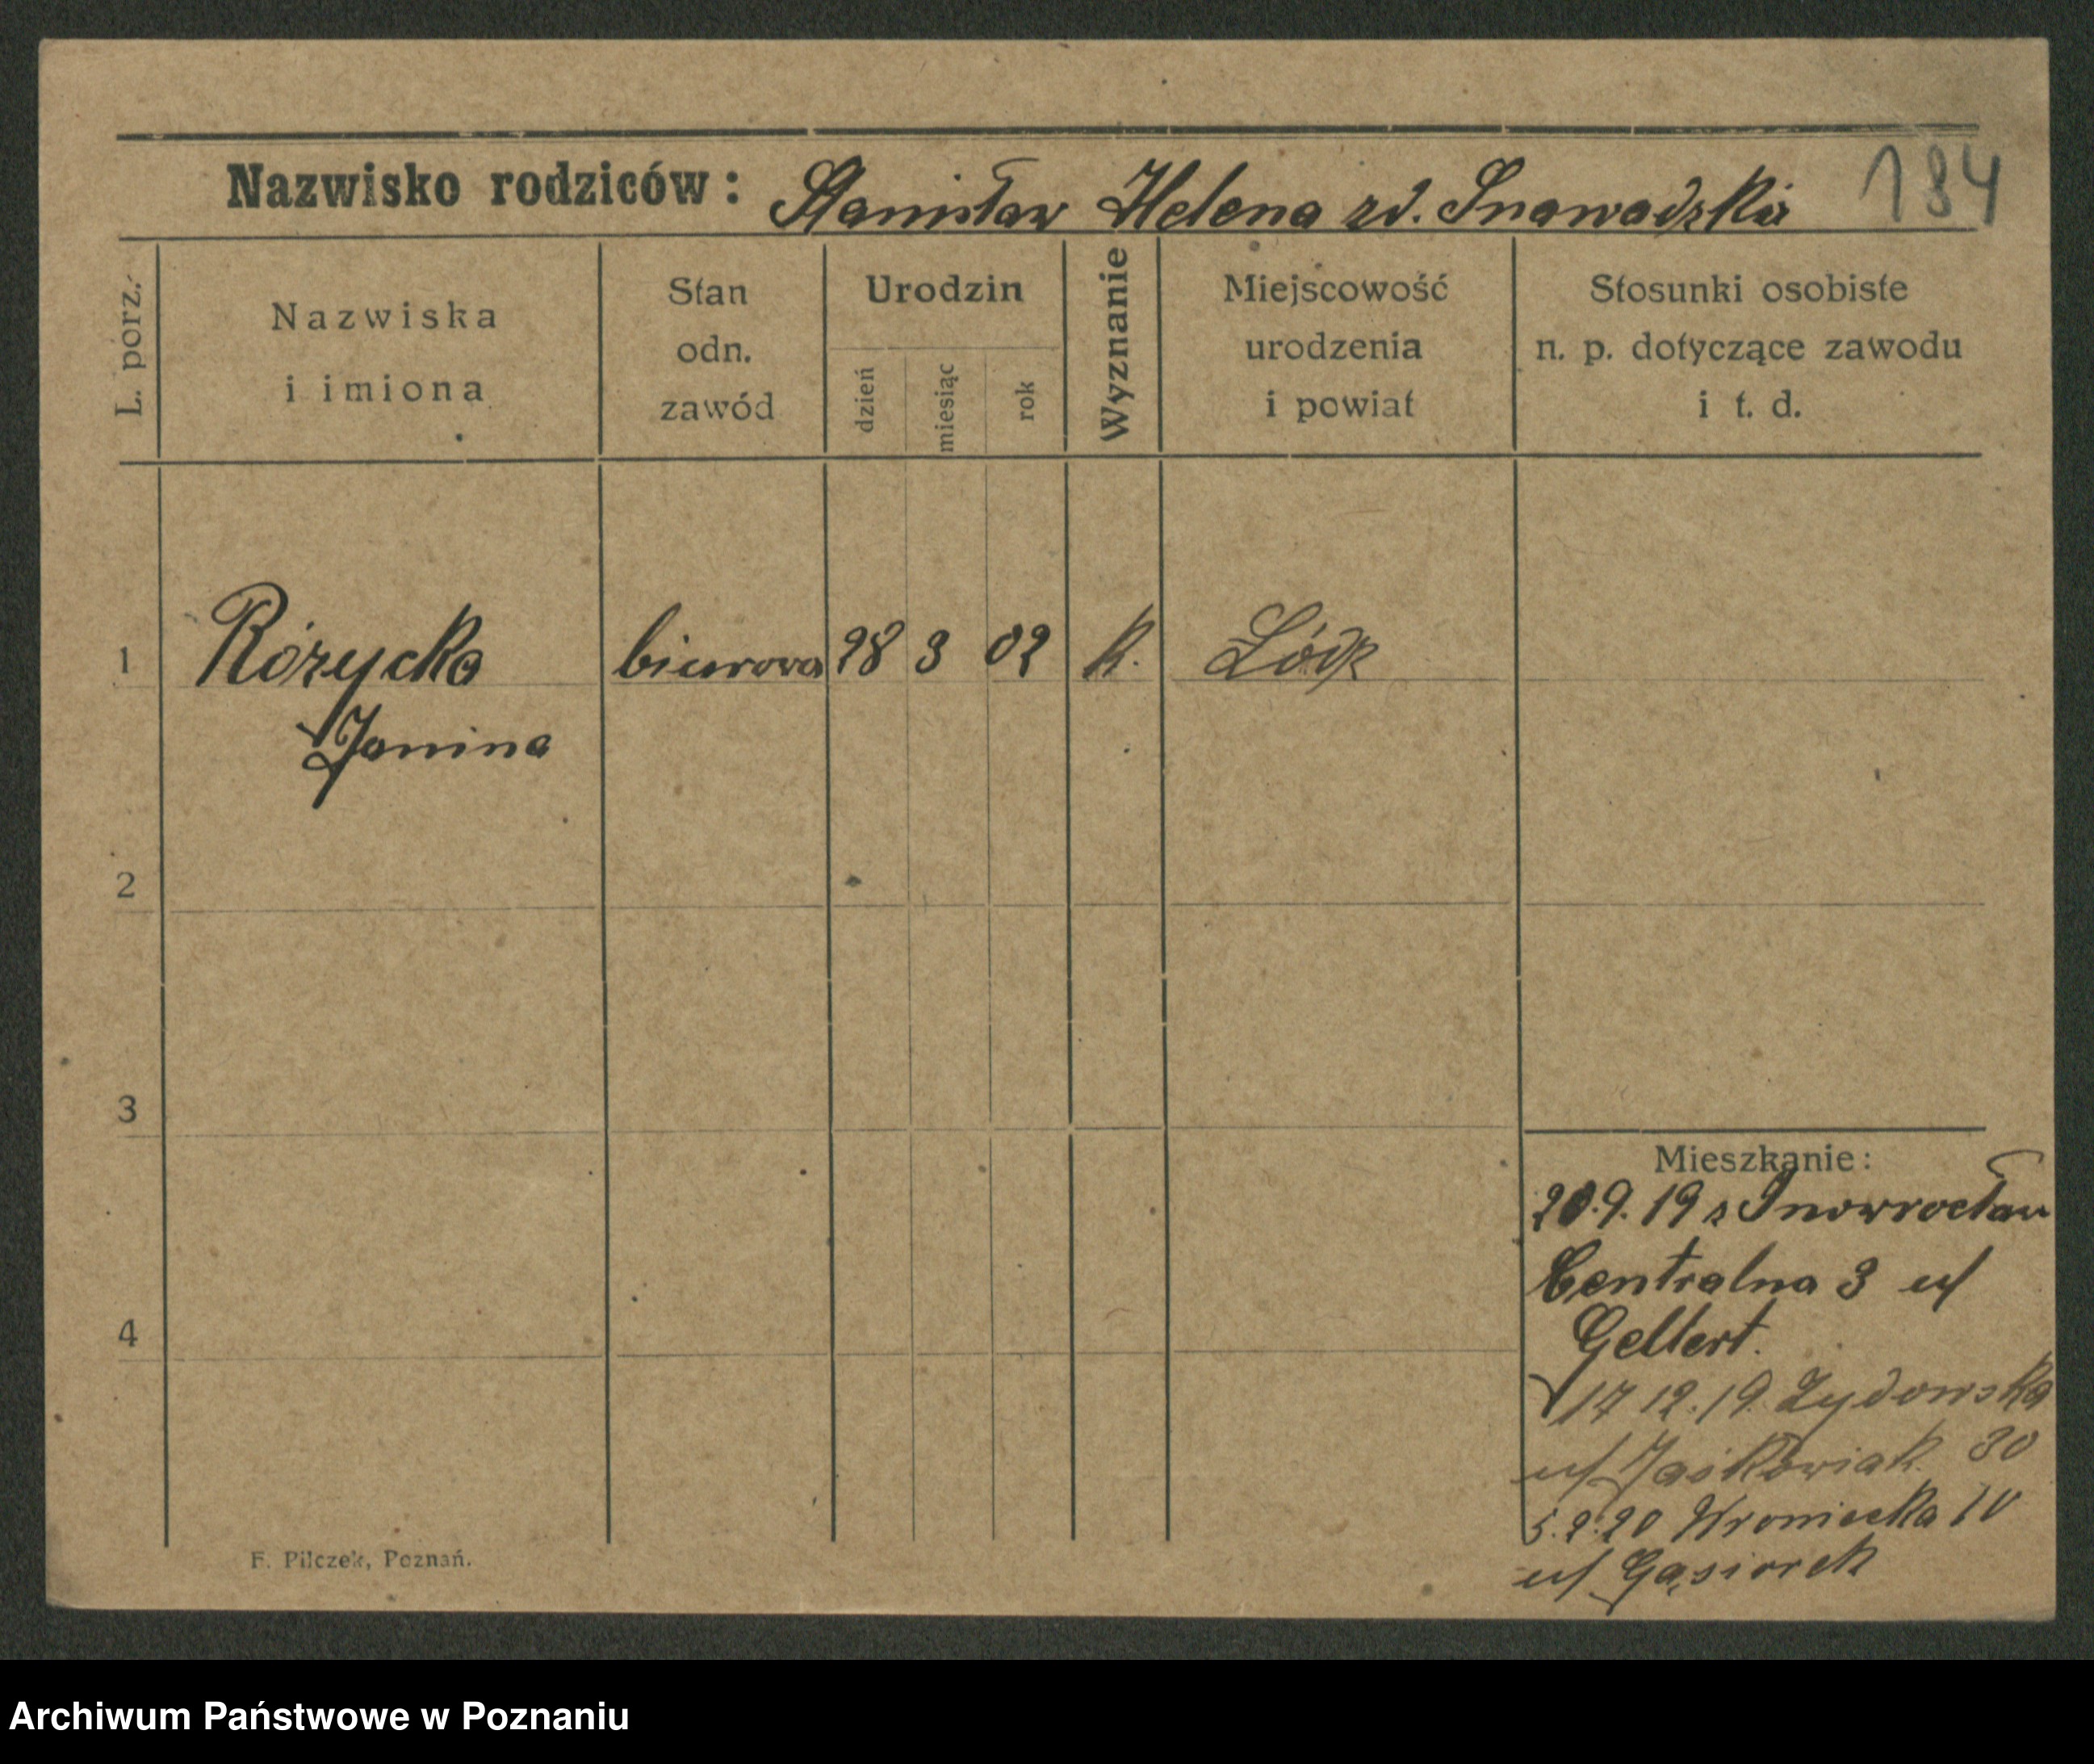 184
Nazwisko rodziców: Stanisław Helena zd. Snawadzka
L. porz.
Nazwiska
i imiona
Stan
odn.
zawód
Urodzin
dzień
miesiąc
rok
Wyznanie
Miejscowość
urodzenia
i powiat
Stosunki osobiste
n. p. dotyczące zawodu
i t. d.
1 Różycka biurowa 28 3 02 k. Łódz
Janina
2
3
4
Mieszkanie:
20.9.19 z Inowrocław
Centralna 3 u/
Gellert.
17 12.19. Żydowska
u/ Jaśkowiak 30
5.2.20 Wroniecka 10
u/ Gąsiorek
F. Pilczek, Poznań.
Archiwum Państwowe w Poznaniu